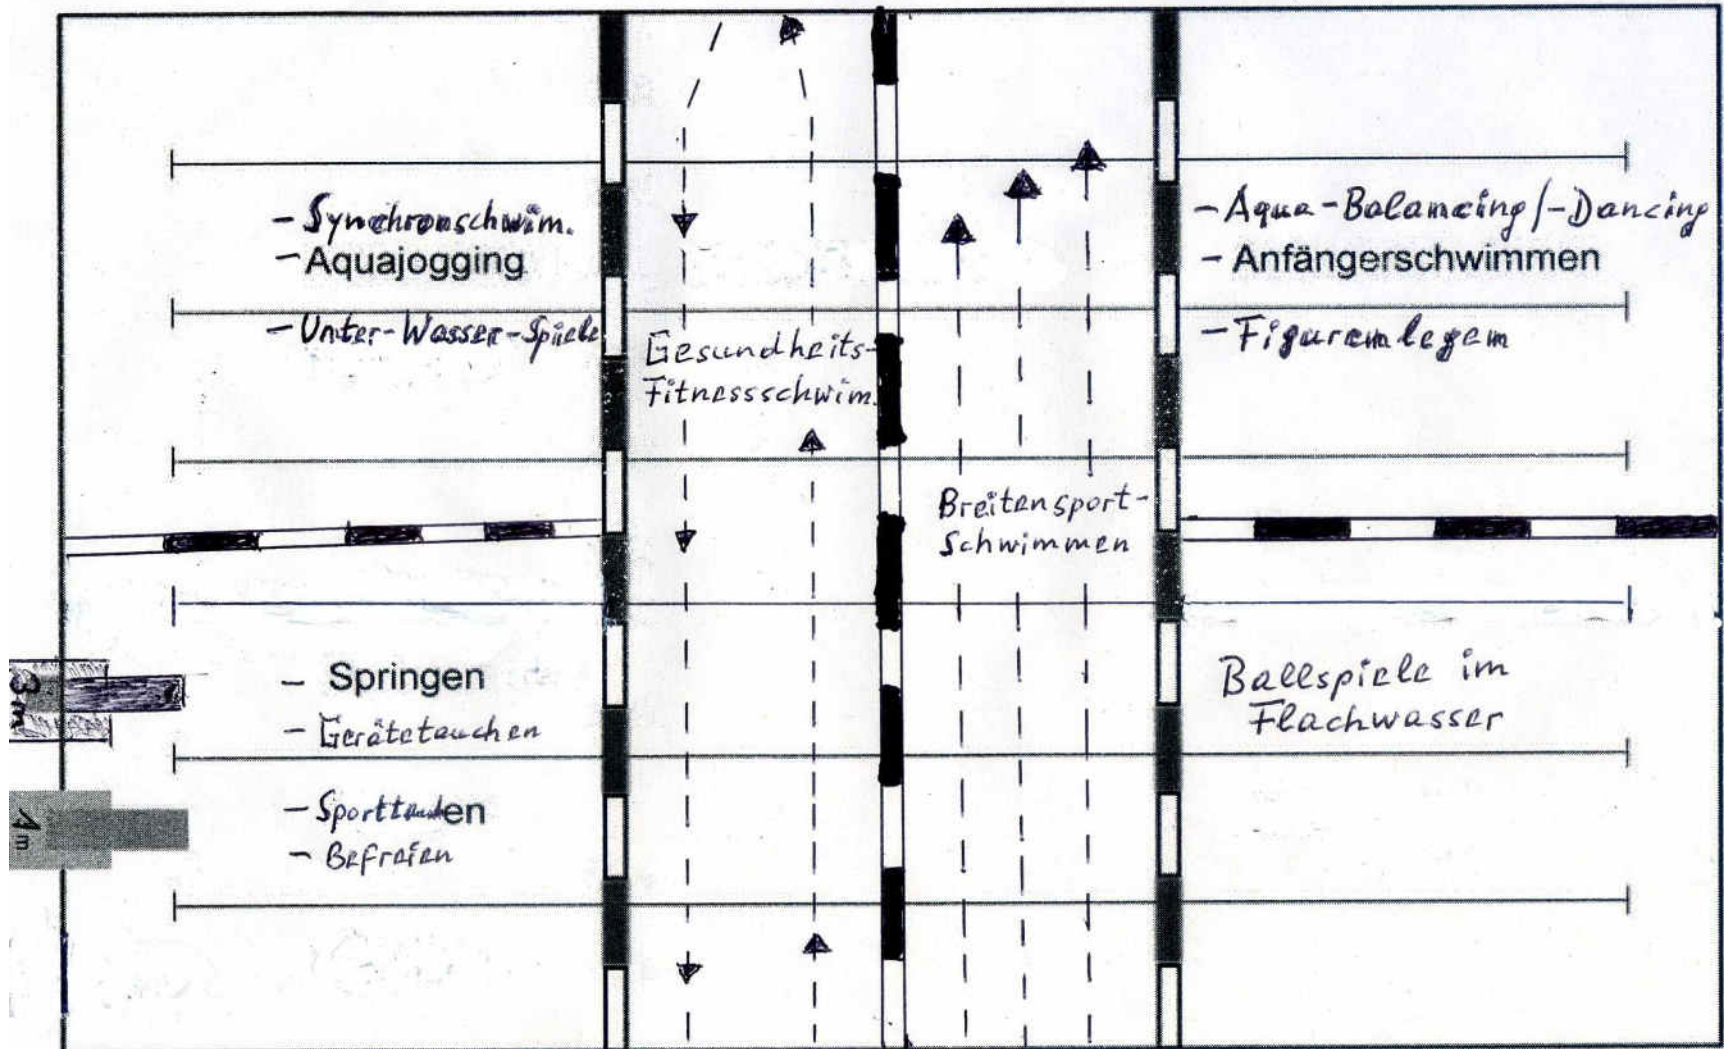 - Synchronschwim.
- Aquajogging
- Unter-Wasser-Spiele
Gesundheits-
Fitnessschwim.
Breitensport-
Schwimmen
- Aqua-Balancing/-Dancing
- Anfängerschwimmen
- Figurenlegen
3m
- Springen
- Gerätetauchen
1m
- Sporttauchen
- Befreien
Ballspiele im
Flachwasser